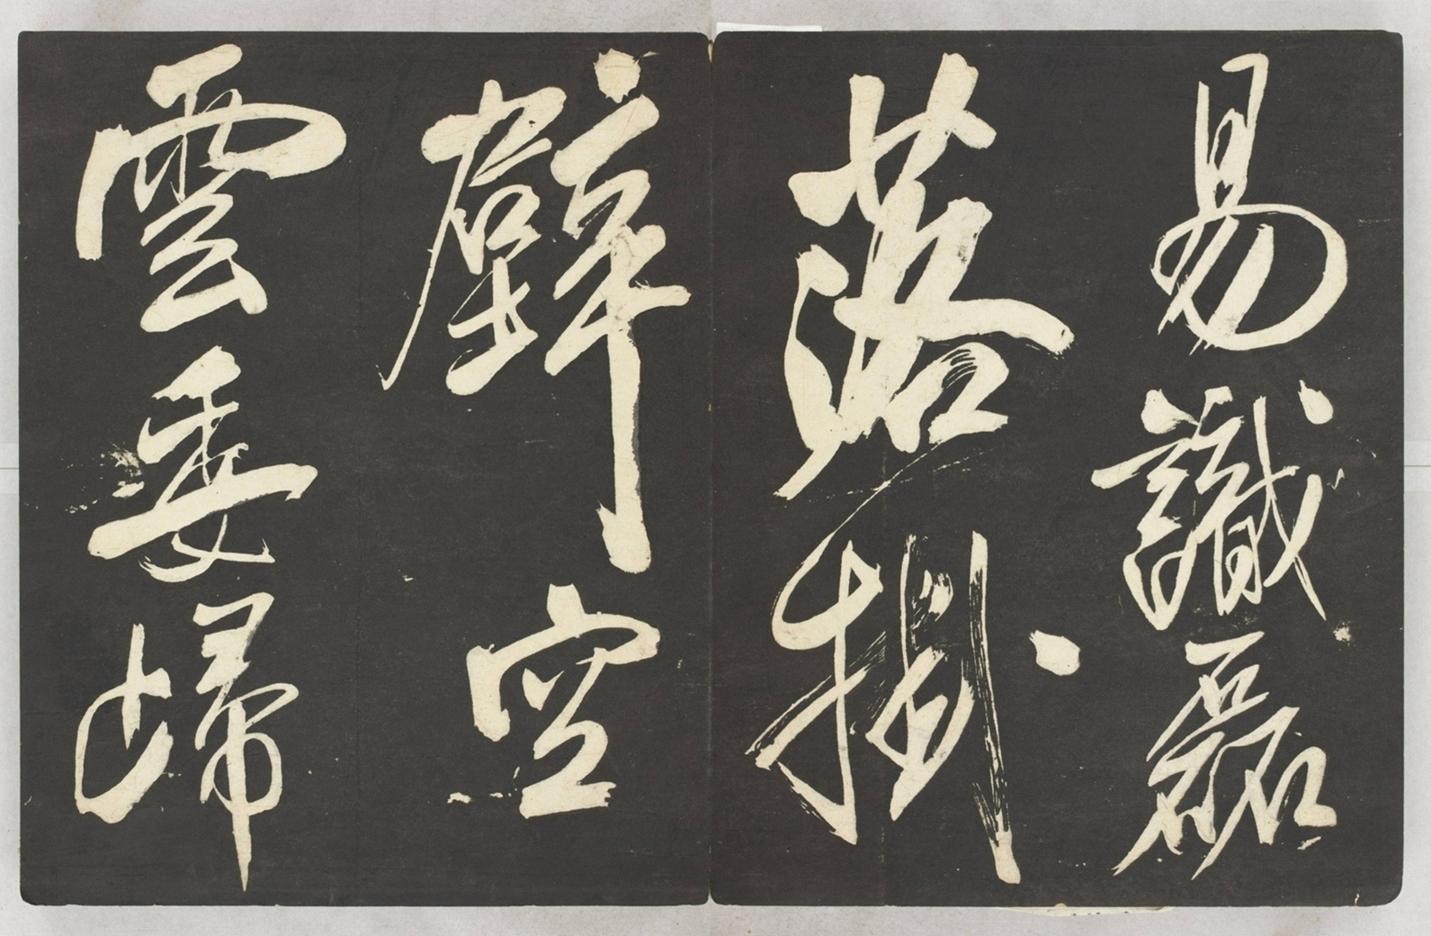 易識磊
落掛
壁空
雲委歸